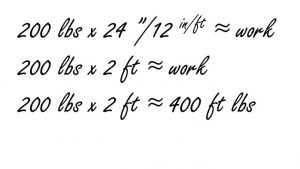 200 lbs x 24 "/12 in/ft ≈ work
200 lbs x 2 ft ≈ work
200 lbs x 2 ft ≈ 400 ft lbs